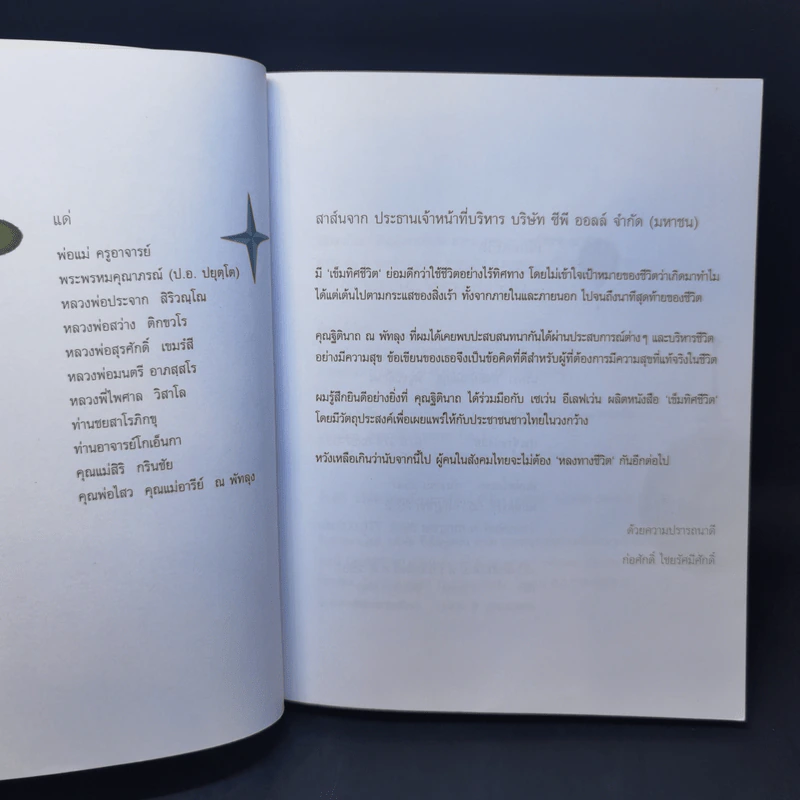 แด่
พ่อแม่ ครูอาจารย์
พระพรหมคุณาภรณ์ (ป.อ. ปยุตฺโต)
หลวงพ่อประจาก สิริวณฺโณ
หลวงพ่อสว่าง ติกขวโร
หลวงพ่อสุรศักดิ์ เขมรํสี
หลวงพ่อมนตรี อาภสฺสโร
หลวงพี่ไพศาล วิสาโล
ท่านชยสาโรภิกขุ
ท่านอาจารย์โกเอ็นกา
คุณแม่สิริ กรินชัย
คุณพ่อไสว คุณแม่อารีย์ ณ พัทลุง
สาส์นจาก ประธานเจ้าหน้าที่บริหาร บริษัท ซีพี ออลล์ จำกัด (มหาชน)
มี ‘เข็มทิศชีวิต’ ย่อมดีกว่าใช้ชีวิตอย่างไร้ทิศทาง โดยไม่เข้าใจเป้าหมายของชีวิตว่าเกิดมาทำไม
ได้แต่เต้นไปตามกระแสของสิ่งเร้า ทั้งจากภายในและภายนอก ไปจนถึงนาทีสุดท้ายของชีวิต
คุณฐิตินาถ ณ พัทลุง ที่ผมได้เคยพบปะสนทนากันได้ผ่านประสบการณ์ต่างๆ และบริหารชีวิต
อย่างมีความสุข ข้อเขียนของเธอจึงเป็นข้อคิดที่ดีสำหรับผู้ที่ต้องการมีความสุขที่แท้จริงในชีวิต
ผมรู้สึกยินดีอย่างยิ่งที่ คุณฐิตินาถ ได้ร่วมมือกับ เซเว่น อีเลฟเว่น ผลิตหนังสือ ‘เข็มทิศชีวิต’
โดยมีวัตถุประสงค์เพื่อเผยแพร่ให้กับประชาชนชาวไทยในวงกว้าง
หวังเหลือเกินว่านับจากนี้ไป ผู้คนในสังคมไทยจะไม่ต้อง ‘หลงทางชีวิต’ กันอีกต่อไป
ด้วยความปรารถนาดี
ก่อศักดิ์ ไชยรัศมีศักดิ์